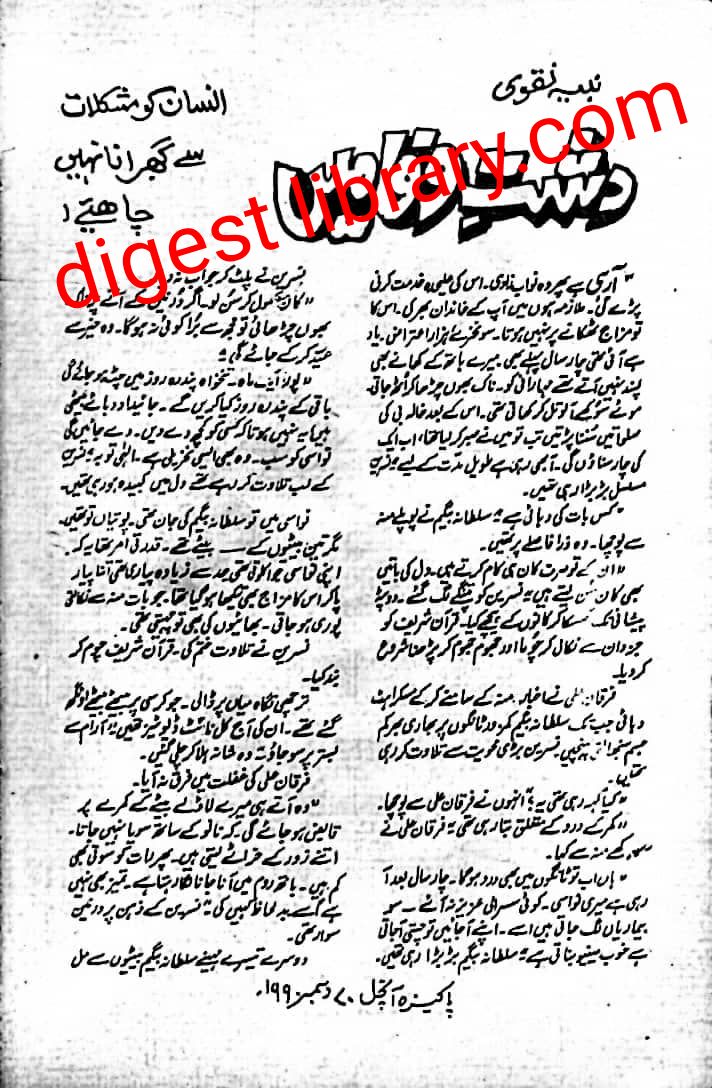 نبیہ نقوی
انسان کو مشکلات
سے گھبرانا نہیں
چاہیئے!
دشتِ وفا میں
digest library.com
"آرہی ہے پھر وہ نواب زادی۔ اس کی علیحدہ خدمت کرنی
پڑے گی۔ ملازمہ ہوں میں آپ کے خاندان بھر کی۔ اس کا
تو مزاج ٹھکانے پر نہیں ہوتا۔ سو نخرے ہزار اعتراض۔ یاد
ہے آئی تھی چار سال پہلے بھی۔ میرے ہاتھ کے کھانے بھی
پسند نہیں آتے تھے مہارانی کو۔ ناک بھوں چڑھا کر اٹھ جاتی
موئے سوکھے آلو تل کر کھاتی تھی۔ اس کے بعد خالہ بی کی
صلواتیں سننا پڑتیں تب تو میں نے صبر کر لیا تھا، اب ایک
کی چار سناؤں گی۔ آ بھی رہی ہے طویل مدت کے لیے" نسرین
مسلسل بڑبڑا رہی تھیں۔
"کس بات کی دہائی ہے" سلطانہ بیگم نے پوپلے منہ
سے پوچھا۔ وہ ذرا فاصلے پر تھیں۔
"ان کے تو صرت کان ہی کام کرتے ہیں۔ دل کی باتیں
بھی کان سن لیتے ہیں" نسرین کو پتنگے لگ گئے۔ دوپٹہ
پیشانی تک سرکا کر کانوں کے پیچھے کیا۔ قرآن شریف کو
جزدان سے نکال کر چوما اور جھوم جھوم کر پڑھنا شروع
کر دیا۔
فرقان علی نے اخبار منہ کے سامنے کر کے مسکراہٹ
دبائی جب تک سلطانہ بیگم کمزور ٹانگوں پر بھاری بھرکم
جسم سنبھالتی پہنچیں۔ نسرین بڑی محویت سے تلاوت کر رہی
تھیں۔
"کیا کہہ رہی تھی یہ؟" انہوں نے فرقان علی سے پوچھا۔
"کمر کے درد کے متعلق بتا رہی تھی" فرقان علی نے
کے منہ سے کہا۔
"ہاں اب تو ٹانگوں میں بھی درد ہوگا۔ چار سال بعد آ
رہی ہے میری نواسی۔ کوئی سسرالی عزیز نہ آئے۔ سو
بیماریاں لگ جاتی ہیں اسے۔ اپنے آجائیں تو چستی آجاتی
ہے خوب سینیو بناتی ہے" سلطانہ بیگم بڑبڑا رہی تھیں۔
نسرین نے پلٹ کر جواب نہ دیا
"کان کھول کر سن لو۔ اگر کے آنے پر ناک
بھوں چڑھائی تو مجھ سے برا کوئی نہ ہوگا۔ وہ میرے
عید کر کے جائے گی"
"پورا ایک ماہ۔ تنخواہ پندرہ روز میں چٹ ہو جائے گی
باقی کے پندرہ روز کیا کریں گے۔ جائیداد دبائے بیٹھی
ہیں یہ نہیں ہوتا کہ کسی کو کچھ دے دیں۔ دے جائیں گی
نواسی کو سب۔ وہ بھی ایسی نخریلی ہے۔ الہٰی توبہ" نسرین
کے لب تلاوت کر رہے تھے دل میں کبیدہ ہو رہی تھیں۔
نواسی میں تو سلطانہ بیگم کی جان تھی۔ پوتیاں تو تھیں
مگر تین بیٹیوں کے بیٹے تھے۔ قدرتی امر تھا یہ کہ
اپنی نواسی جو اکلوتی تھی حد سے زیادہ پیاری تھی۔ اتنا پیار
پا کر اس کا مزاج بھی تیکھا ہو گیا تھا۔ جو بات منہ سے نکالتی
پوری ہو جاتی۔ بھائیوں کی بھی تو چہیتی تھی۔
نسرین نے تلاوت ختم کی۔ قرآن شریف چوم کر
بند کیا۔
ترچھی نگاہ میاں پر ڈالی۔ جو کرسی پر بیٹھے بیٹھے اونگھ
گئے تھے۔ ان کی آج کل نائٹ ڈیوٹیز تھیں "آرام سے
بستر پر سو جاؤ" وہ شانہ ہلا کر چلی گئیں۔
فرقان علی کی غفلت میں فرق نہ آیا۔
"وہ آتے ہی میرے لاڈلے بیٹے کے کمرے پر
قابض ہو جائے گی۔ کہ نانو کے ساتھ سویا نہیں جاتا۔
اتنے زور کے خراٹے لیتی ہیں۔ پھر رات کو سوتی بھی
کم ہیں۔ باتھ روم میں آنا جانا لگا رہتا ہے۔ تمیز بھی نہیں
ہے اسے۔ بد لحاظ کہیں کی" نسرین کے ذہن پر
سوار تھی۔
دوسرے تیسرے مہینے سلطانہ بیگم بیٹیوں سے مل
پاکیزہ آنچل ۷۰ دسمبر ۱۹۹۰ء